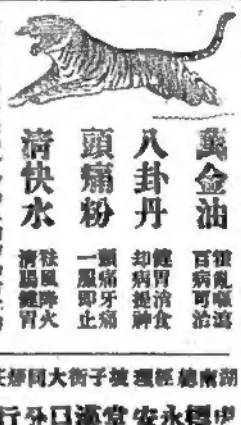 萬金油
霍亂嘔瀉
百病可治
八卦丹
健胃消食
却病提神
頭痛粉
頭痛牙痛
一服即止
清快水
祛風降火
清腸健胃
湖南總經理坡子街大同藥
虎標永安堂漢口分行